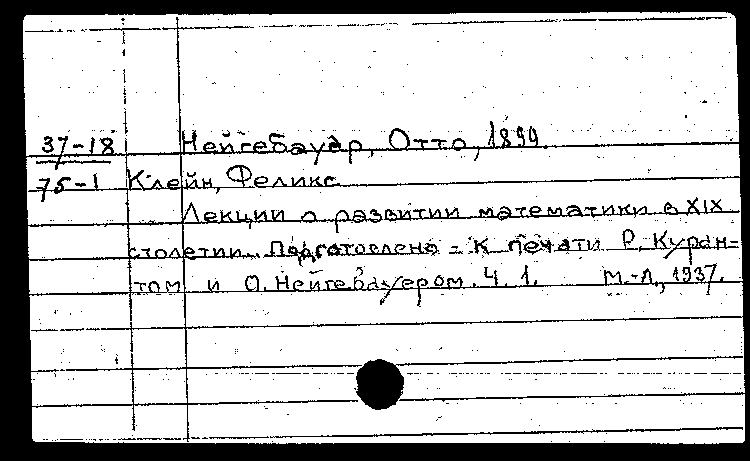 37-18 Нейгебауэр, Отто, 1899.
75-1 Клейн, Феликс
Лекции о развитии математики в XIX
столетии. Подготовлено к печати Р. Куран-
том и О. Нейгебауером. Ч. 1. М.-Л., 1937.